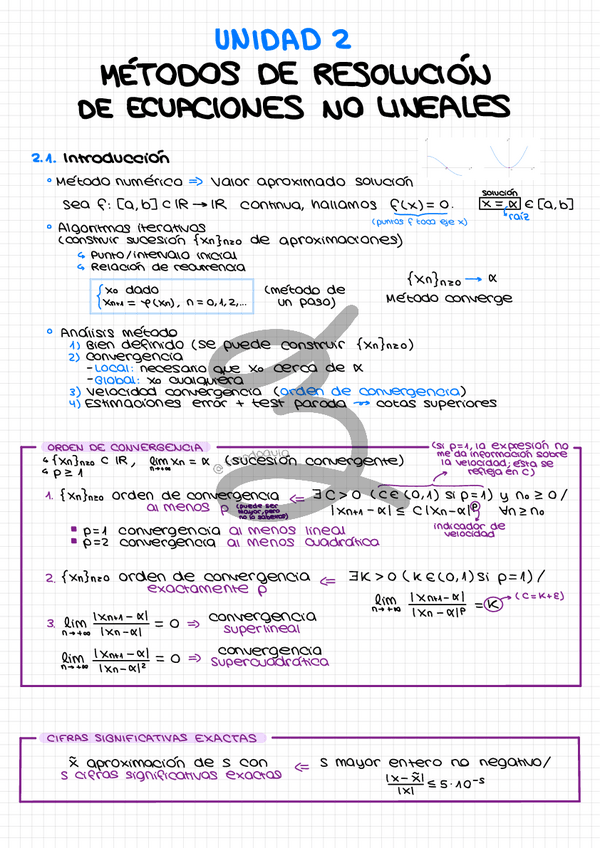 UNIDAD 2
MÉTODOS DE RESOLUCIÓN
DE ECUACIONES NO LINEALES
2.1. Introducción
° Método numérico => valor aproximado solución
sea f: [a,b] ⊂ IR → IR continua, hallamos f(x) = 0.
(puntos f toca eje x)
solución
x = α ∈ [a,b]
raíz
° Algoritmos iterativos
(construir sucesión {xn}n≥0 de aproximaciones)
↳ Punto/intervalo inicial
↳ Relación de recurrencia
{ x0 dado
xn+1 = φ(xn), n = 0,1,2,...
(método de
un paso)
{xn}n≥0 → α
Método converge
° Análisis método
1) Bien definido (se puede construir {xn}n≥0)
2) Convergencia
-Local: necesario que x0 cerca de α
-Global: x0 cualquiera
3) Velocidad convergencia (orden de convergencia)
4) Estimaciones error + test parada → cotas superiores
ORDEN DE CONVERGENCIA
↳ {xn}n≥0 ⊂ IR, lim n→+∞ xn = α (sucesión convergente)
↳ p ≥ 1
(si p=1, la expresión no
me da información sobre
la velocidad; ésta se
refleja en C)
1. {xn}n≥0 orden de convergencia <= ∃ C > 0 (C ∈ (0,1) si p=1) y n0 ≥ 0 /
al menos p (puede ser
mayor, pero
no lo sabemos)
|xn+1 - α| ≤ C |xn - α|^p ∀n ≥ n0
indicador de
velocidad
▪ p=1 convergencia al menos lineal
▪ p=2 convergencia al menos cuadrática
2. {xn}n≥0 orden de convergencia <= ∃K > 0 (K ∈ (0,1) si p=1) /
exactamente p
lim n→+∞ |xn+1 - α| / |xn - α|^p = K → (C = K+ε)
3. lim n→+∞ |xn+1 - α| / |xn - α| = 0 => convergencia
superlineal
lim n→+∞ |xn+1 - α| / |xn - α|² = 0 => convergencia
supercuadrática
CIFRAS SIGNIFICATIVAS EXACTAS
x̃ aproximación de s con
s cifras significativas exactas
<= s mayor entero no negativo/
|x - x̃| / |x| ≤ 5·10^-s